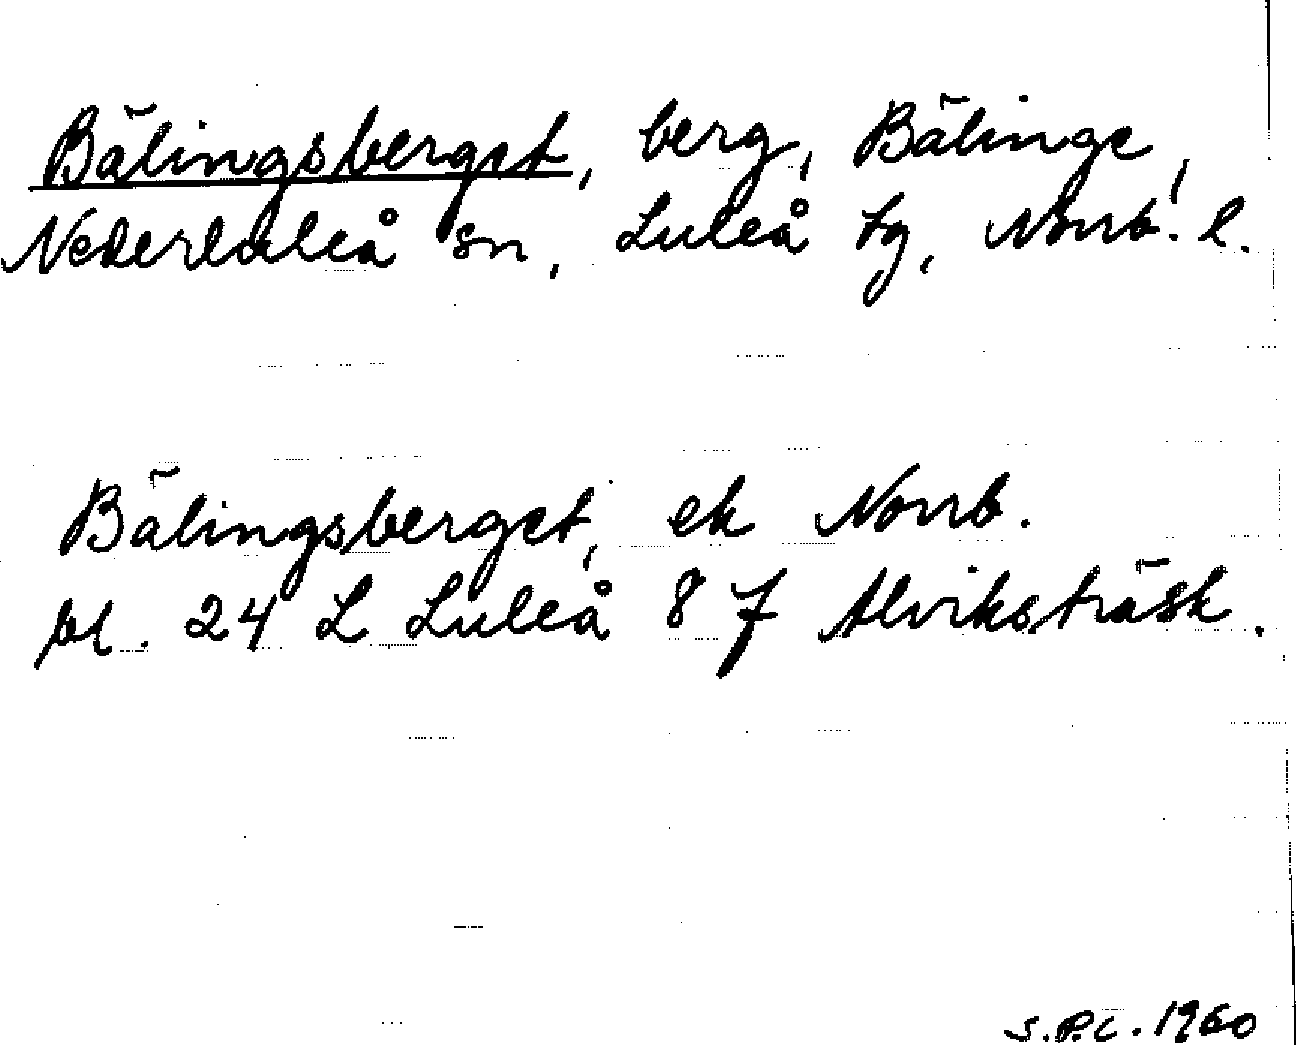 Bälingsberget, berg, Bälinge,
Nederluleå sn, Luleå tg, Norrb. l.
Bälingsberget, ek Norrb.
bl. 24 L Luleå 8 f Alviksträsk.
S.P.C. 1960